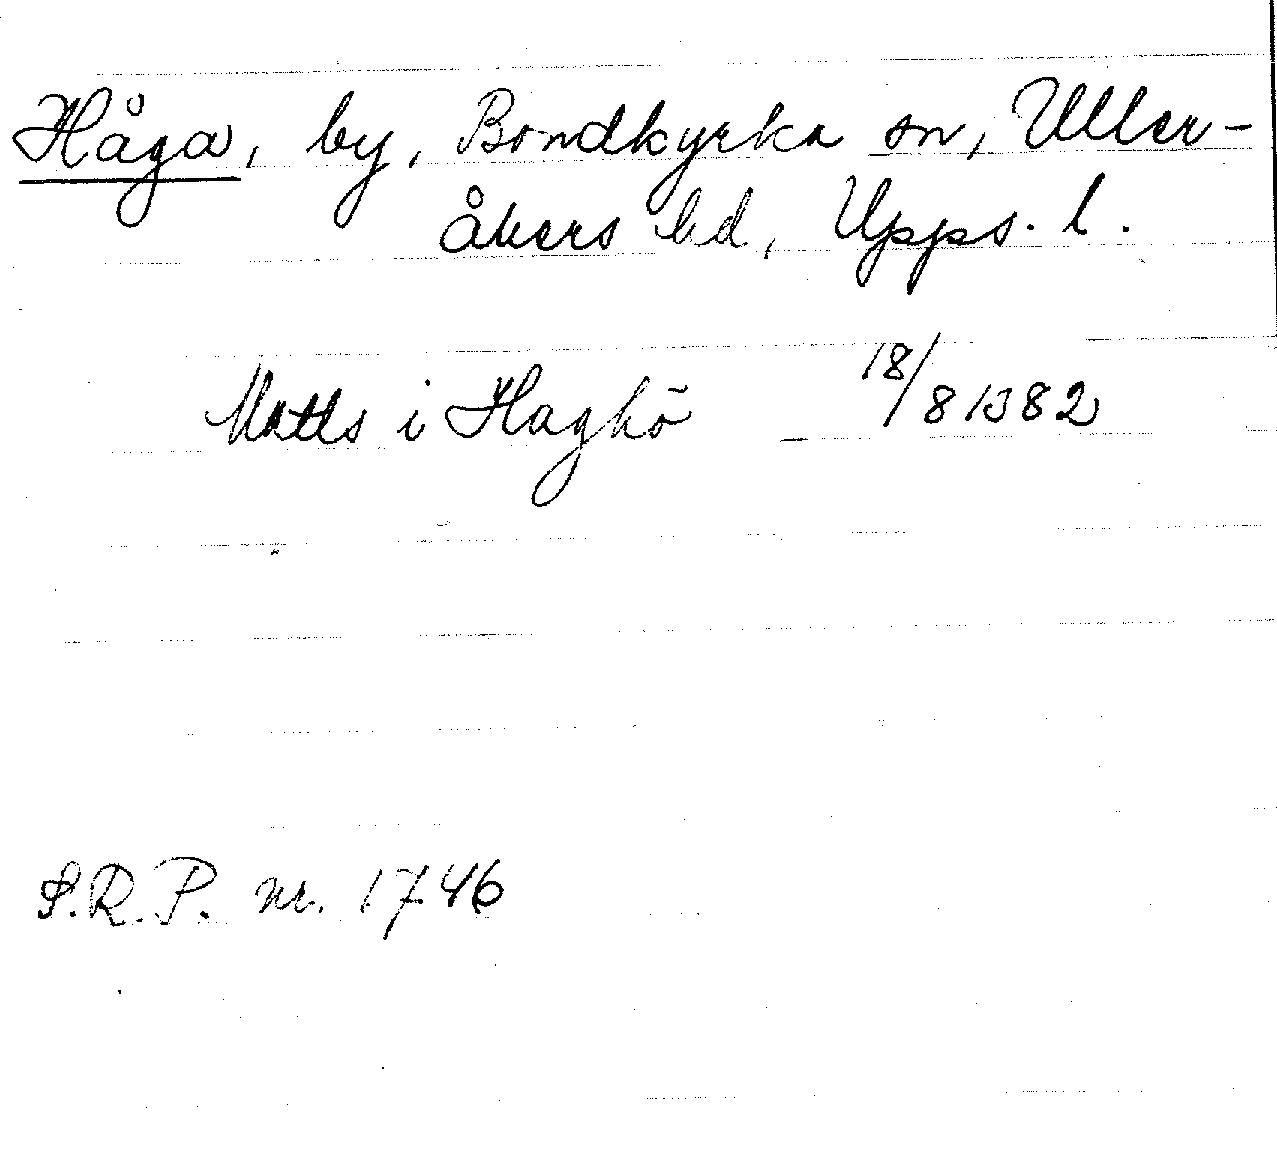 Håga, by, Bondkyrka sn, Uller-
åkers hd, Upps. l.
Matts i Haghö 18/8 1382
S.R.P. nr. 1746